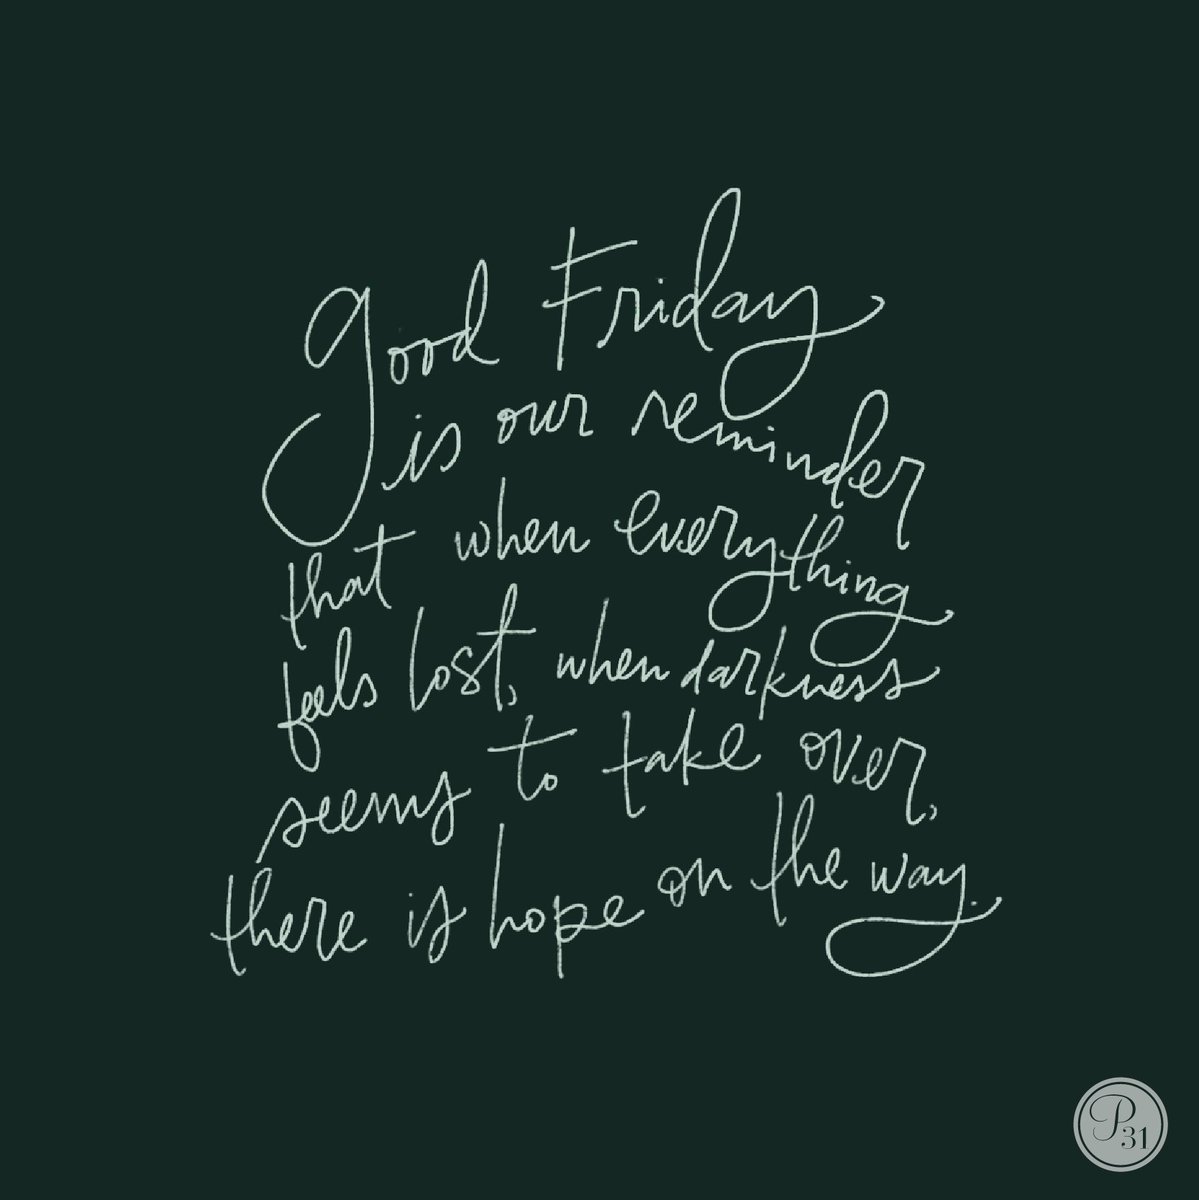 good Friday
is our reminder
that when everything
feels lost, when darkness
seems to take over,
there is hope on the way.
P
31